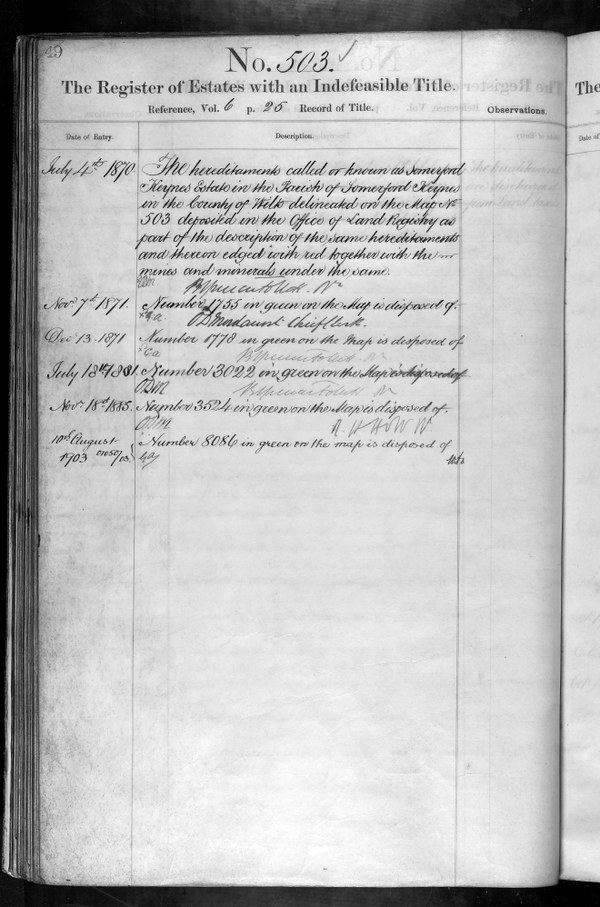 49
No. 503.
The Register of Estates with an Indefeasible Title.
Reference, Vol. 6 p. 25 Record of Title.
Observations.
Date of Entry.
Description.
July 4th 1870
The hereditaments called or known as Somerford
Keynes Estate in the Parish of Somerford Keynes
in the County of Wilts delineated on the Map No
503 deposited in the Office of Land Registry as
part of the description of the same hereditaments
and thereon edged with red together with the
mines and minerals under the same.
Nov. 7th 1871.
Number 1755 in green on the Map is disposed of.
Chief Clerk.
Dec 13. 1871
Number 1778 in green on the Map is disposed of
July 18th 1881.
Number 3022 in green on the Map is disposed of
Nov. 18th 1885.
Number 3524 in green on the Map is disposed of.
10th August
1903
Number 8086 in green on the map is disposed of
The
Date of